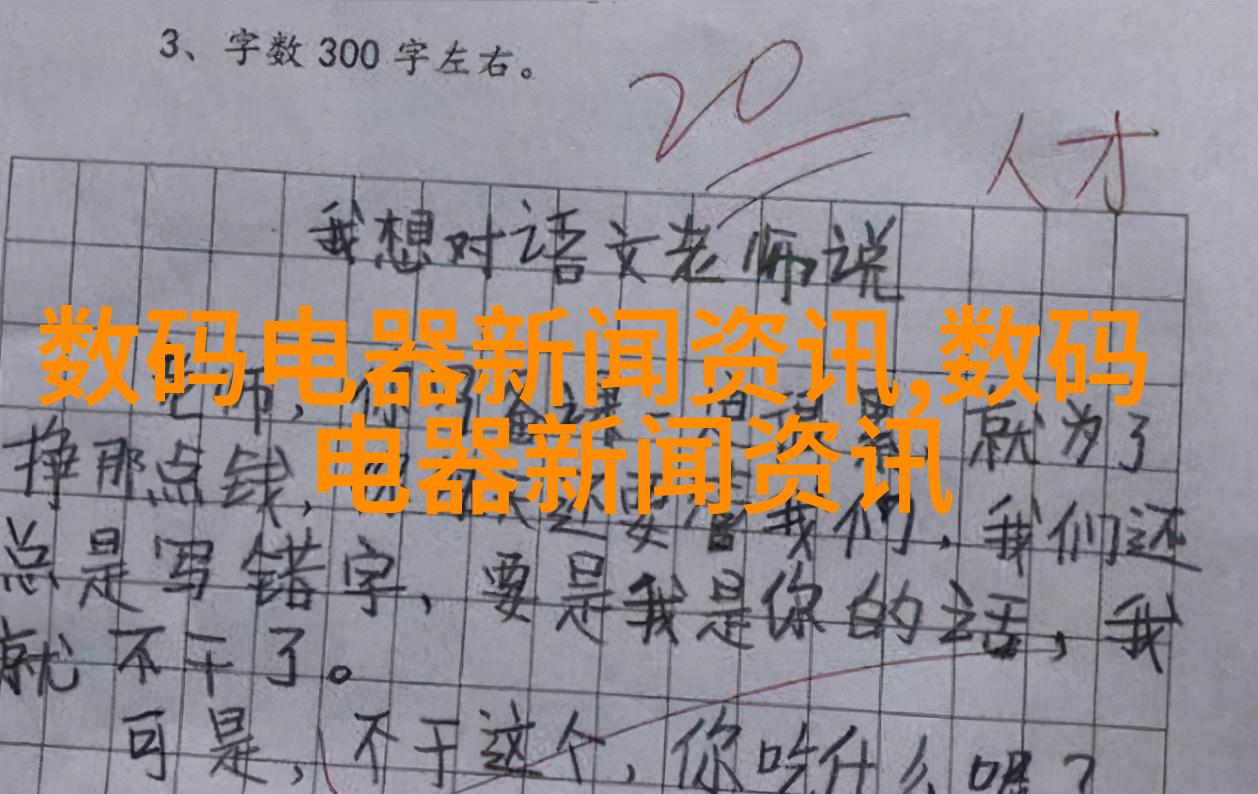 3、字数300字左右。
20
人才
我想对语文老师说
数码电器新闻资讯,数码
电器新闻资讯
老师，你 就为了
挣那点钱， 还要管我们，我们还
总是写错字，要是我是你的话，我
就不干了。
可是，不干这个，你吃什么呢？